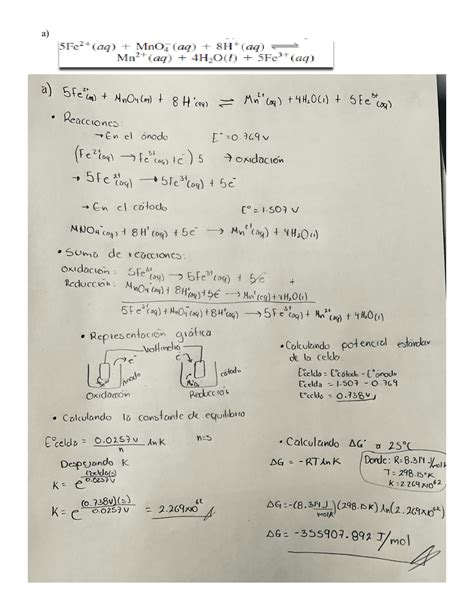 a)
5Fe²⁺(aq) + MnO₄⁻(aq) + 8H⁺(aq) ⇌
Mn²⁺(aq) + 4H₂O(l) + 5Fe³⁺(aq)
a) 5Fe²⁺(aq) + MnO₄⁻(aq) + 8H⁺(aq) ⇌ Mn²⁺(aq) + 4H₂O(l) + 5Fe³⁺(aq)
• Reacciones:
→ En el ánodo E°=0.769v
(Fe²⁺(aq) → Fe³⁺(aq) + e⁻) 5 → oxidación
→ 5Fe²⁺(aq) → 5Fe³⁺(aq) + 5e⁻
→ En el cátodo E° = 1.507 v
MNO₄⁻(aq) + 8H⁺(aq) + 5e⁻ → Mn²⁺(aq) + 4H₂O(l)
• Suma de reacciones:
Oxidación: 5Fe²⁺(aq) → 5Fe³⁺(aq) + 5e⁻ +
Reducción: MnO₄⁻(aq) + 8H⁺(aq) + 5e⁻ → Mn²⁺(aq) + 4H₂O(l)
5Fe²⁺(aq) + MnO₄⁻(aq) + 8H⁺(aq) → 5Fe³⁺(aq) + Mn²⁺(aq) + 4H₂O(l)
• Representación gráfica
Voltmetro
e⁻ e⁻
ánodo cátodo
Oxidación Reducción
• Calculando potencial estándar
de la celda.
E°celda = E°cátodo - E°ánodo
E°celda = 1.507 - 0.769
E°celda = 0.738v
• Calculando la constante de equilibrio
E°celda = 0.0257v / n ln K n=5
Despejando K
K = e^((E°celda)(n) / 0.0257v)
K = e^((0.738v)(5) / 0.0257v) = 2.269x10⁶²
• Calculando ΔG° a 25°C
ΔG = -RT ln K
Donde: R=8.314 J/molK
T = 298.15°K
K = 2.269x10⁶²
ΔG=-(8.314 J/molK)(298.15K) ln(2.269x10⁶²)
ΔG = -355907.892 J/mol